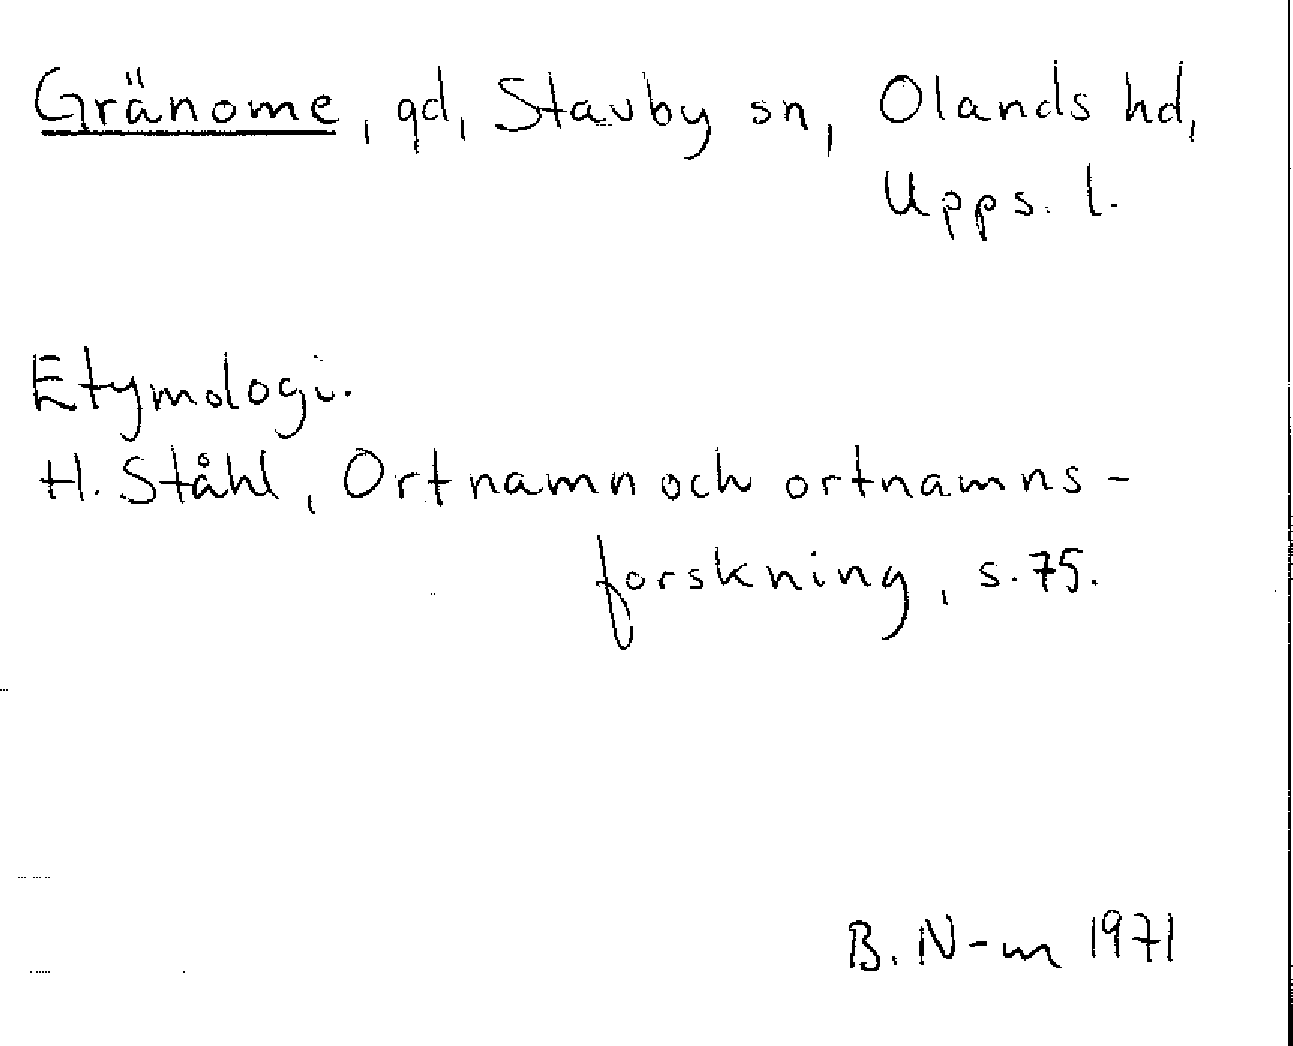 Gränome, gd, Stavby sn, Olands hd,
Upps. l.
Etymologi.
H. Ståhl, Ortnamn och ortnamns-
forskning, s. 75.
B. N-m 1971